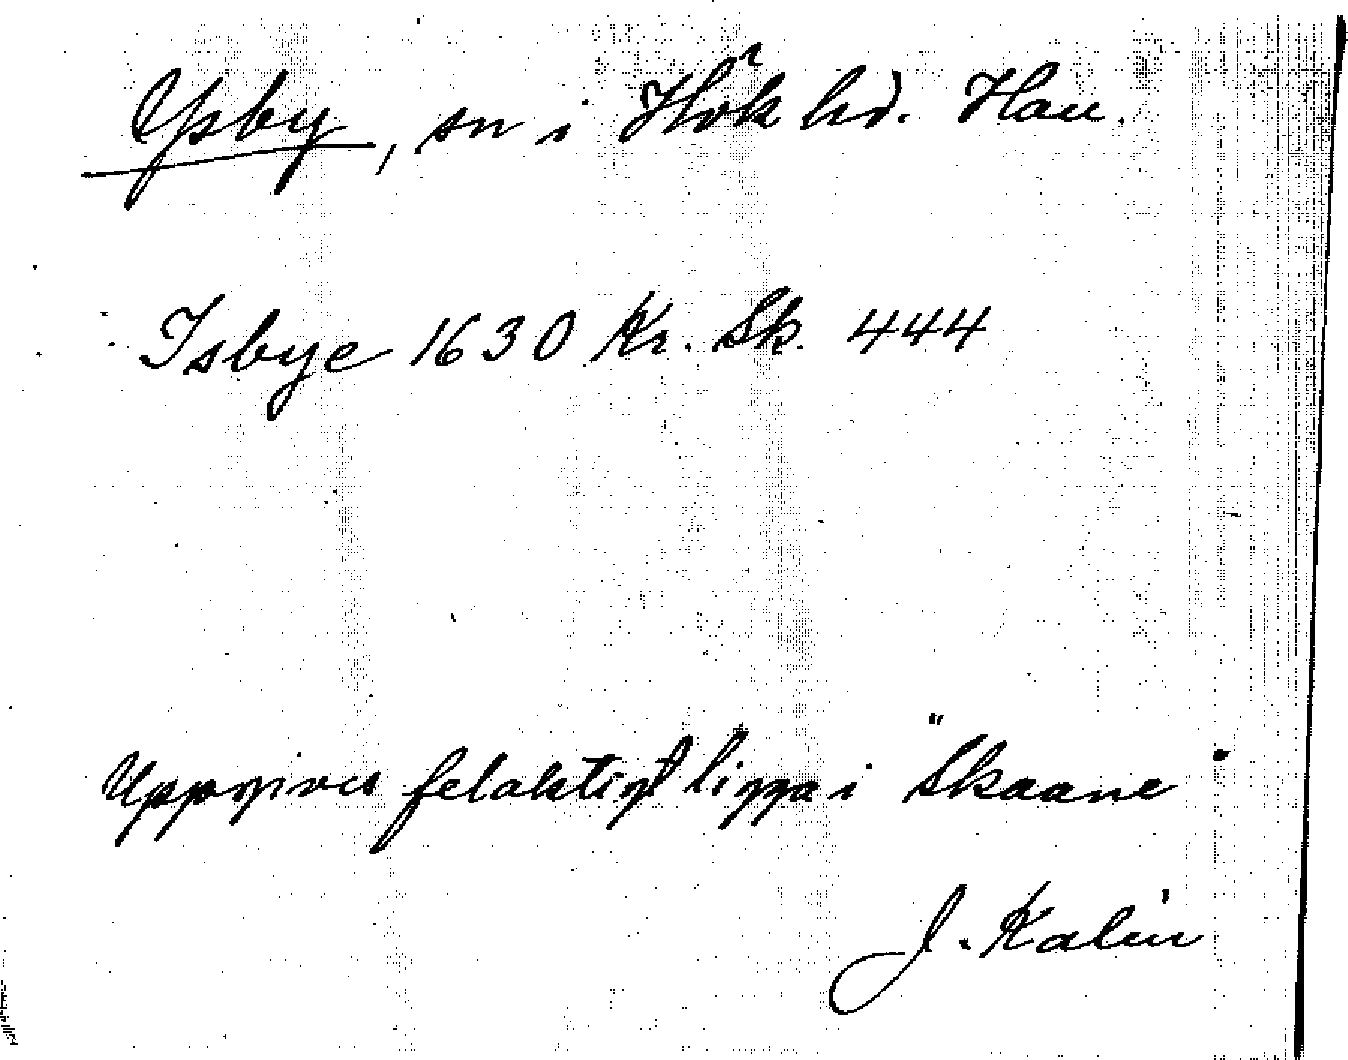 Ysby, sn i Höks hd. Hall.
Isbye 1630 Kr. Sk. 444
Uppgives felaktigt ligga i "Skaane"
J. Kalén